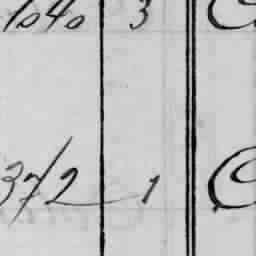 1040 3
372 1